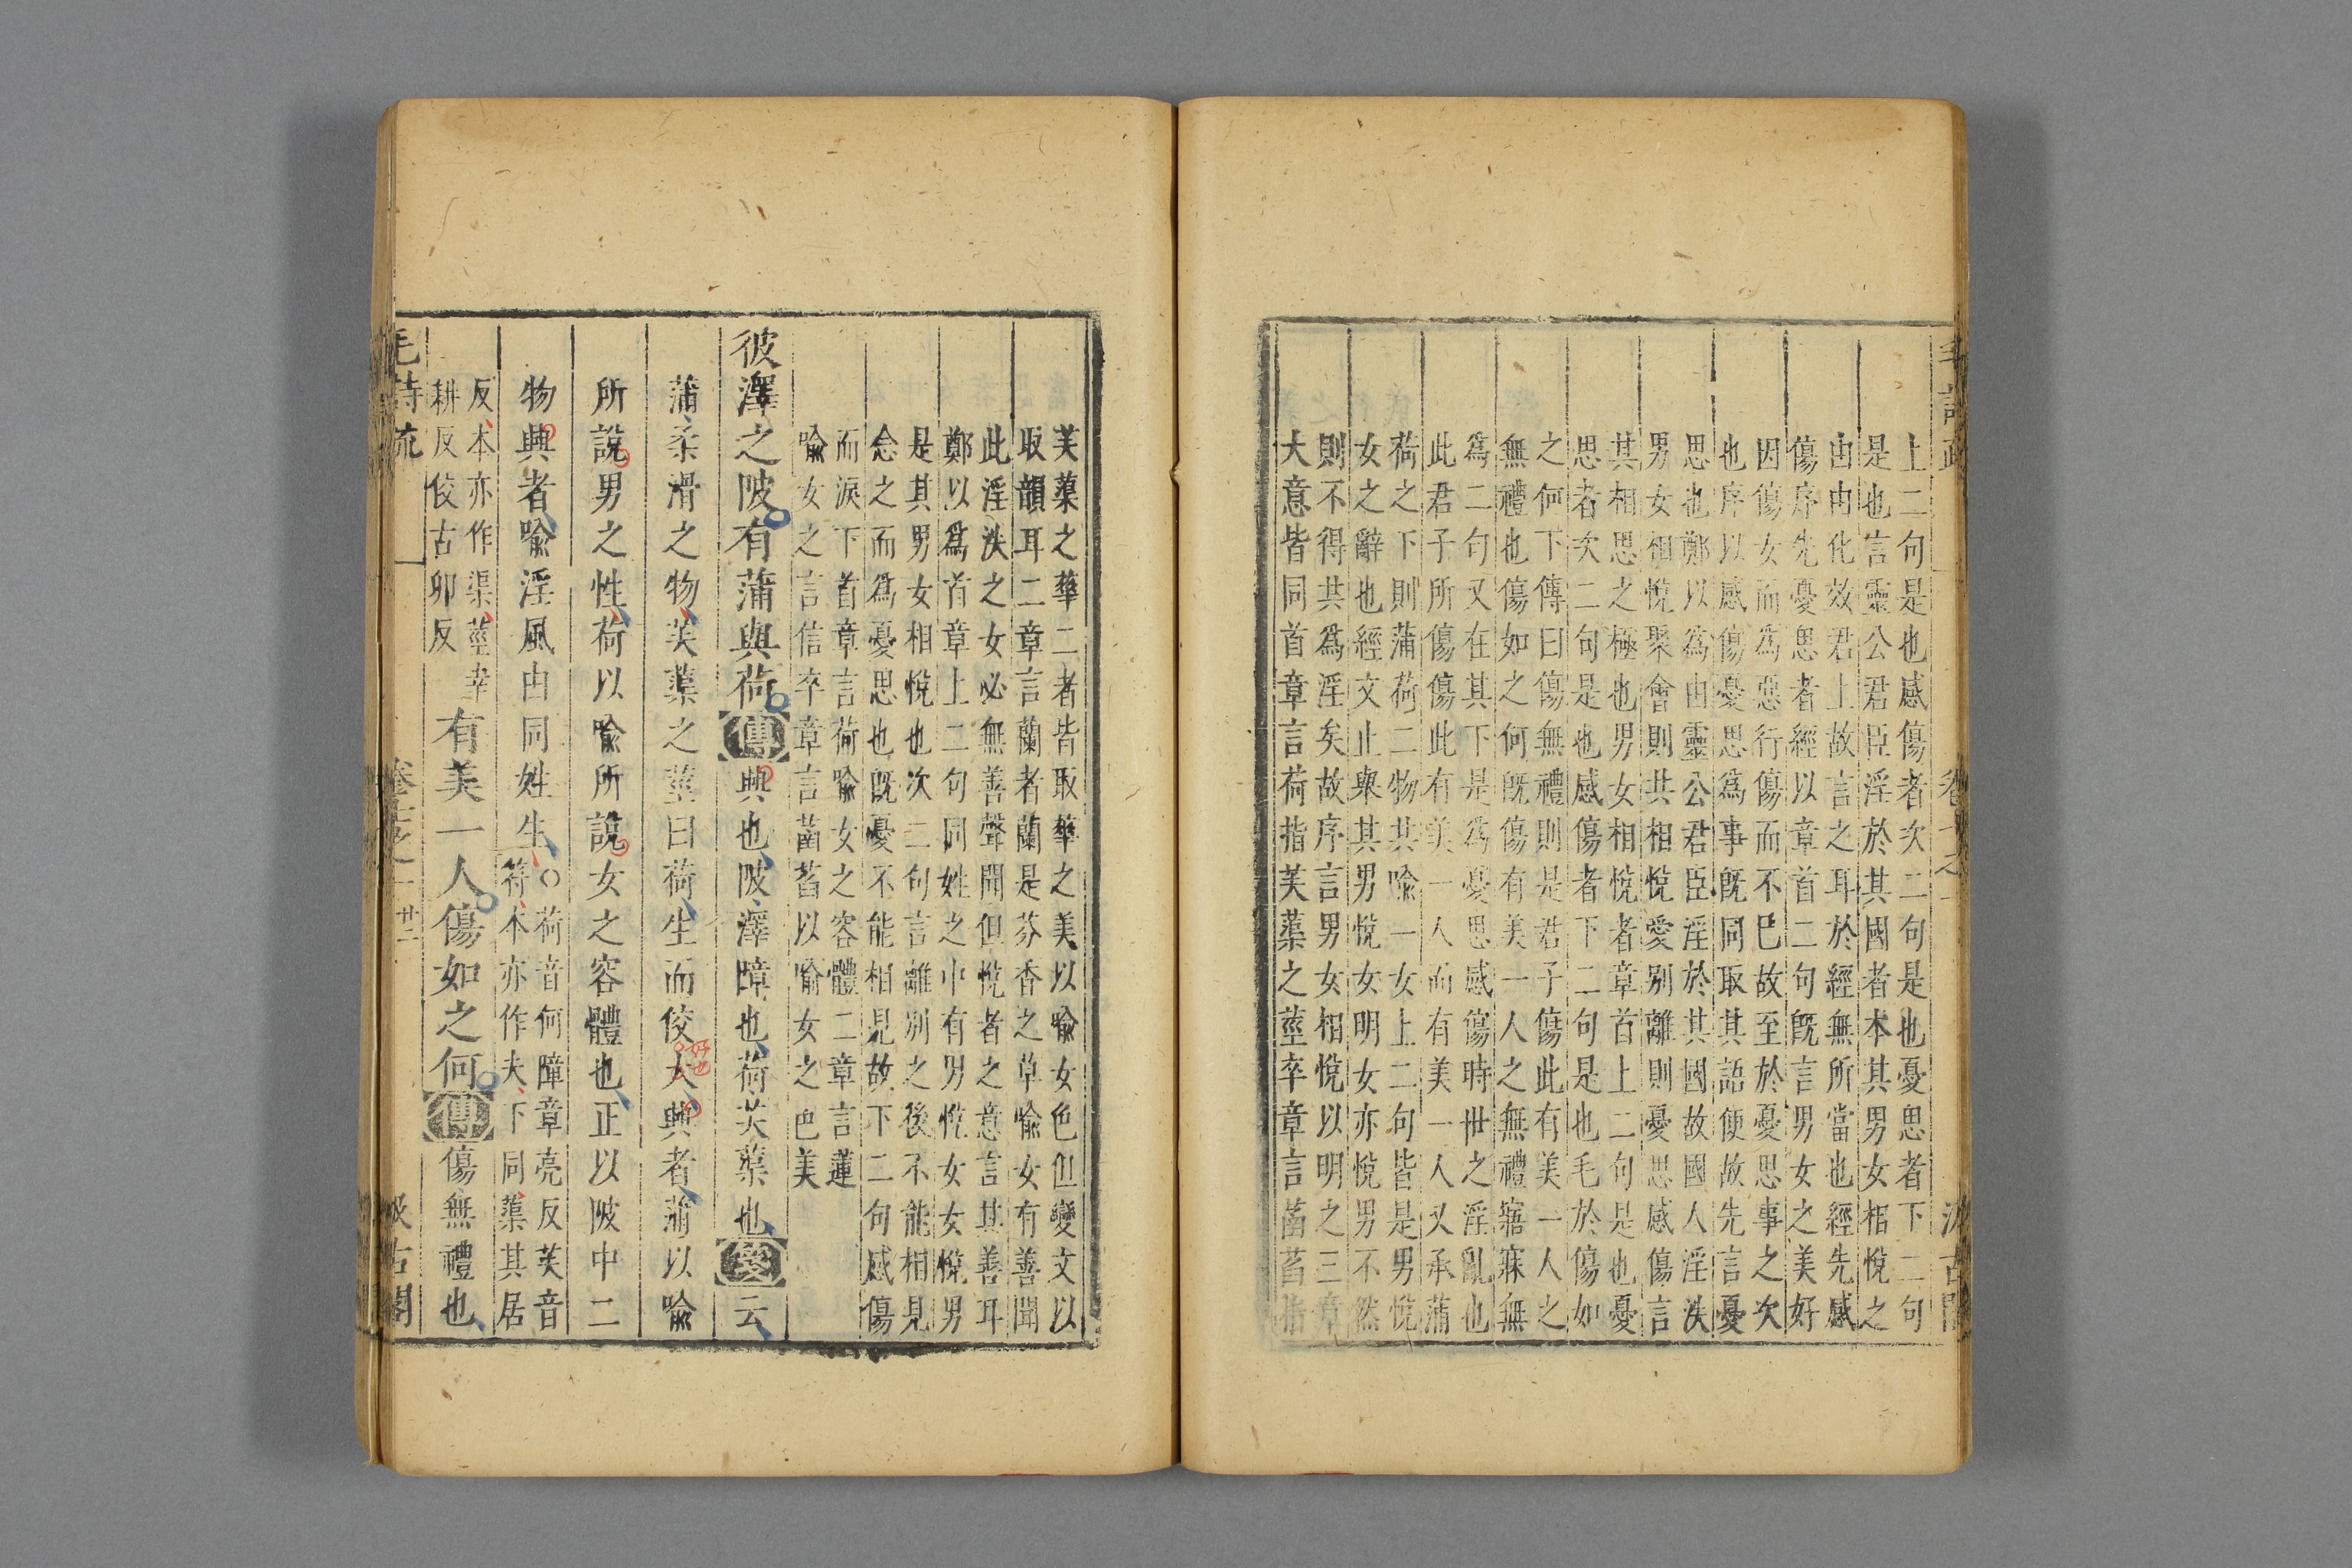 毛詩疏 卷七之一 汲古閣
上二句是也感傷者次二句是也憂思者下二句
是也言靈公君臣淫於其國者本其男女相悅之
由由化效君上故言之耳於經無所當也經先感
傷序先憂思者經以章首二句旣言男女之美好
因傷女而爲惡行傷而不已故至於憂思事之次
也序以感傷憂思爲事旣同取其語便故先言憂
思也鄭以爲由靈公君臣淫於其國故國人淫泆
男女相悅聚會則共相悅愛别離則憂思感傷言
其相思之極也男女相悅者章首上二句是也憂
思者次二句是也感傷者下二句是也毛於傷如
之何下傳曰傷無禮則是君子傷此有美一人之
無禮也傷如之何旣傷有美一人之無禮寤寐無
爲二句又在其下是爲憂思感傷時世之淫亂也
此君子所傷傷此有美一人而有美一人又承蒲
荷之下則蒲荷二物共喻一女上二句皆是男悅
女之辭也經文止舉其男悅女明女亦悅男不然
則不得其爲淫矣故序言男女相悅以明之三章
大意皆同首章言荷指芙蕖之莖卒章言菡萏指
芙蕖之華二者皆取華之美以喻女色但變文以
取韻耳二章言蘭者蘭是芬香之草喻女有善聞
此淫泆之女必無善聲聞但悅者之意言其善耳
鄭以爲首章上二句同姓之中有男悅女女悅男
是其男女相悅也次二句言離别之後不能相見
念之而爲憂思也旣憂不能相見故下二句感傷
而淚下首章言荷喻女之容體二章言蓮
喻女之言信卒章言菡萏以喻女之色美
彼澤之陂有蒲與荷傳興也陂澤障也荷芙蕖也箋云
蒲柔滑之物芙蕖之莖曰荷生而佼大興者蒲以喻
好也
所說男之性荷以喻所說女之容體也正以陂中二
物興者喻淫風由同姓生○荷音何障章亮反芙音
符本亦作夫下同蕖其居
反本亦作渠莖幸
耕反佼古卯反
有美一人傷如之何傳傷無禮也
毛詩疏 卷七之一 廿二 汲古閣